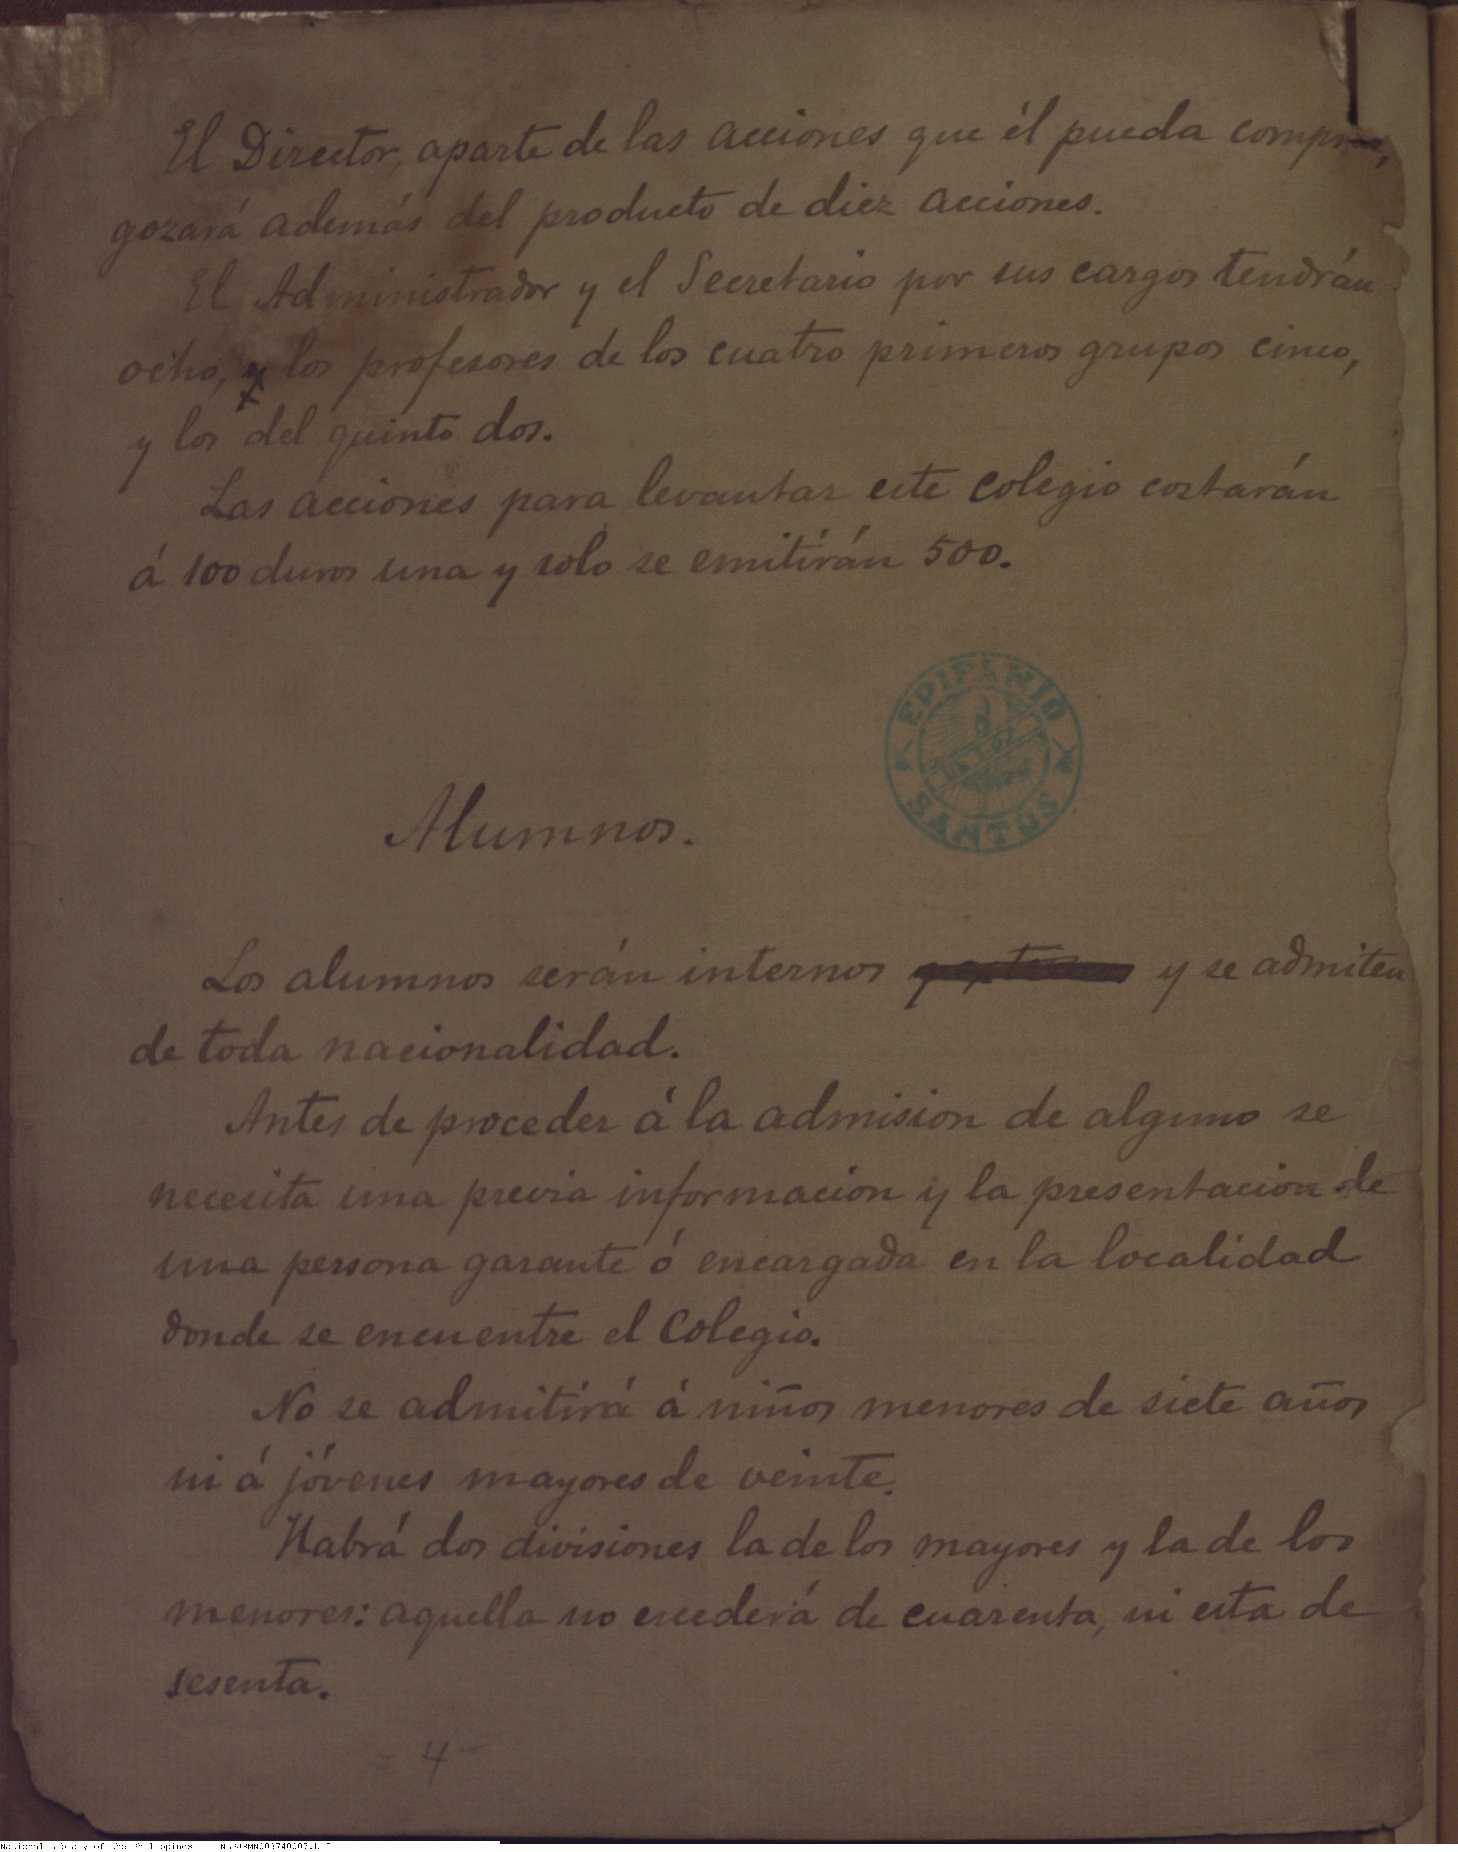 El Director, aparte de las acciones que él pueda comprar,
gozará además del producto de diez acciones.
El Administrador y el Secretario por sus cargos tendrán
ocho, y los profesores de los cuatro primeros grupos cinco,
y los del quinto dos.
Las acciones para levantar este colegio costarán
á 100 duros una y solo se emitirán 500.
EPIFANIO
SANTOS
Alumnos.
Los alumnos serán internos y se admiten
de toda nacionalidad.
Antes de proceder á la admision de alguno se
necesita una previa informacion y la presentacion de
una persona garante ó encargada en la localidad
donde se encuentre el Colegio.
No se admitirá á niños menores de siete años
ni á jóvenes mayores de veinte.
Habrá dos divisiones la de los mayores y la de los
menores: aquella no excederá de cuarenta, ni esta de
sesenta.
- 4 -
National Library of the Philippines